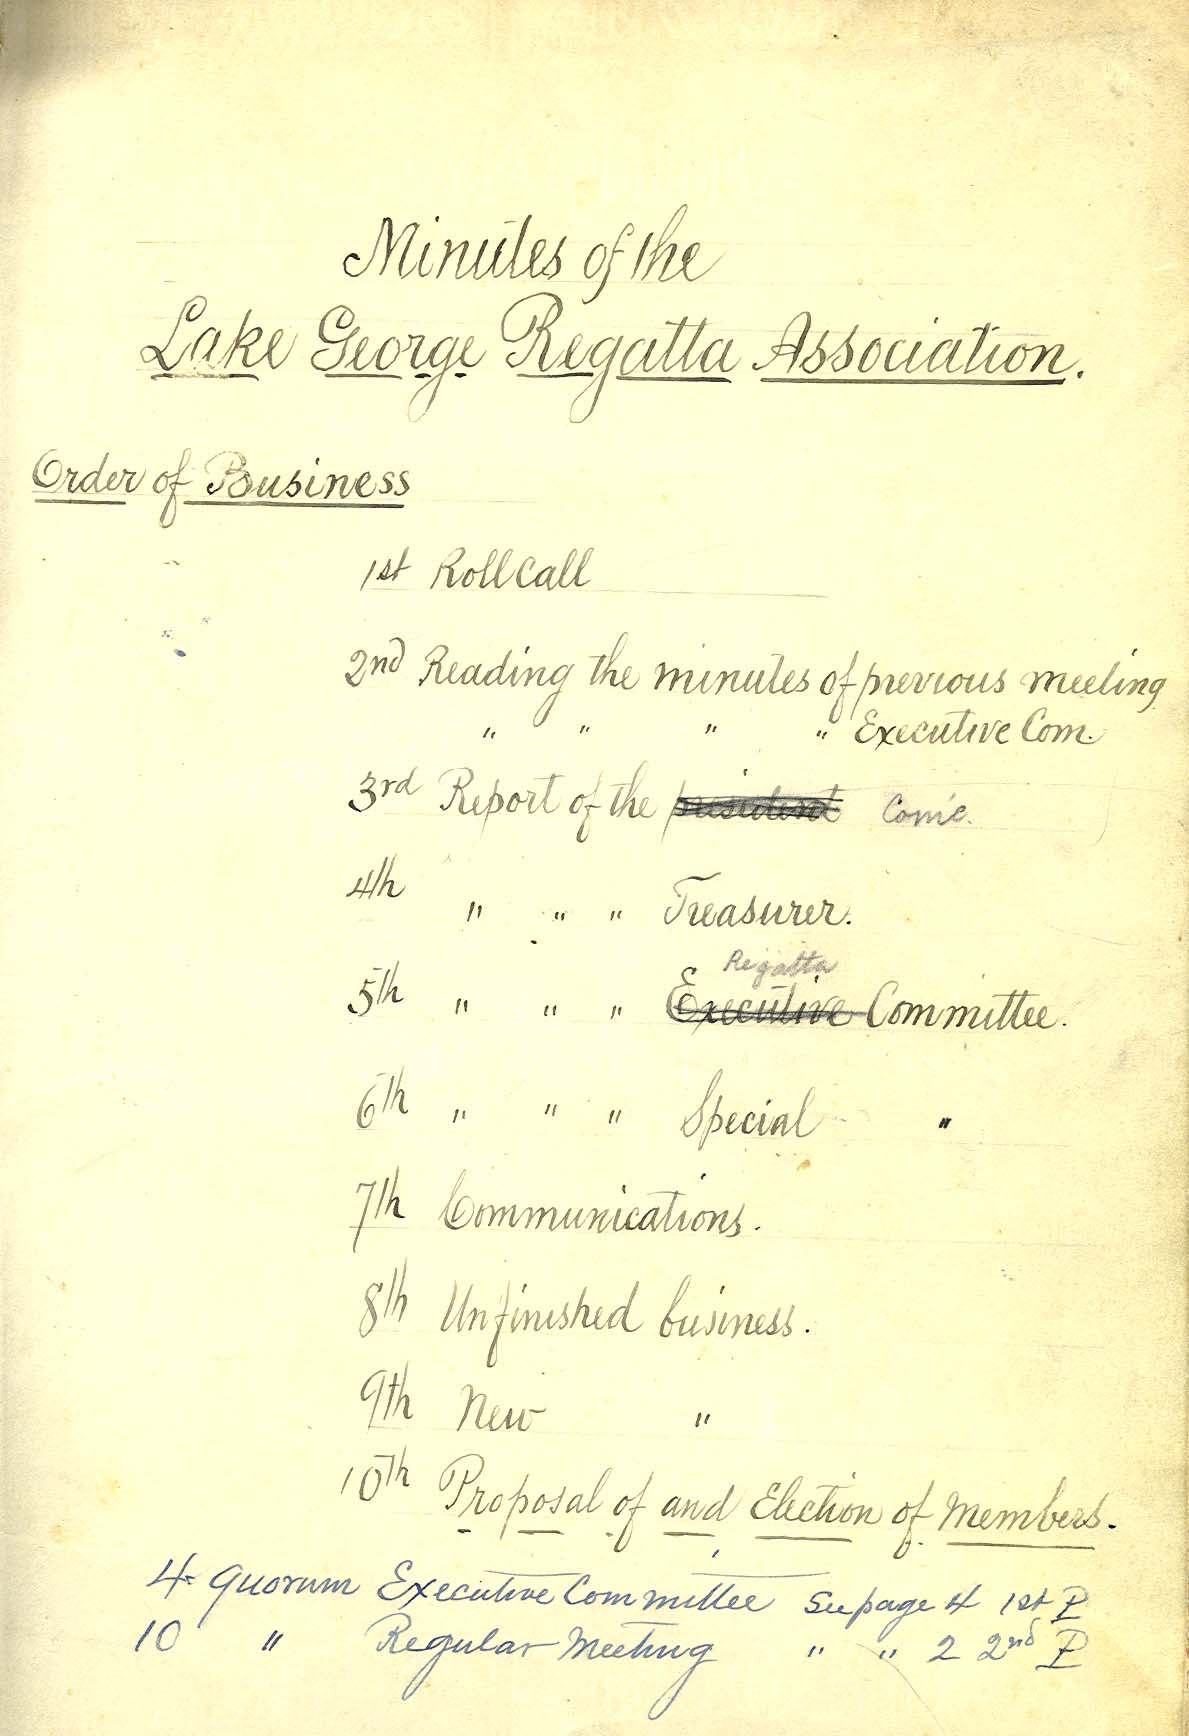 Minutes of the
Lake George Regatta Association.
Order of Business
1st Roll Call
2nd Reading the minutes of previous meeting
" " " " Executive Com.
3rd Report of the president Come.
4th " " " Treasurer.
Regatta
5th " " " Executive Committee.
6th " " " Special "
7th Communications.
8th Unfinished business.
9th New "
10th Proposal of and Election of Members.
4 Quorum Executive Committee See page 4 1st P
10 " Regular Meeting " " 2 2nd P